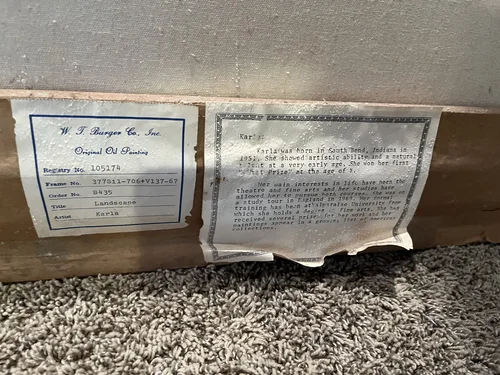 W. T. Burger Co., Inc.
Original Oil Painting
Registry No. 105174
Frame No. 377011-706+V137-67
Order No. B435
Title Landscape
Artist Karla
Karla was born in South Bend, Indiana in
1951. She showed artistic ability and a natural
talent at a very early age. She won her first
"Art Prize" at the age of 8.
Her main interests in life have been the
theatre and fine arts and her studies have
allowed her to pursue both careers. She was on
a study tour in England in 1969. Her formal
training has been at University from
which she holds a degree in fine arts. She has
received several prizes for her work and her
paintings appear in a growing list of American
collections.